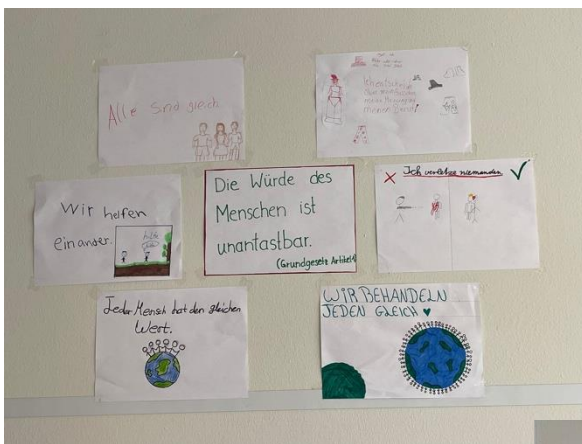 Alle sind gleich
Ich entscheide
über meinen
meine
meinen
Wir helfen
einander.
Die Würde des
Menschen ist
unantastbar.
(Grundgesetz Artikel 1)
Ich verletze niemanden
Jeder Mensch hat den gleichen
Wert.
WIR BEHANDELN
JEDEN GLEICH